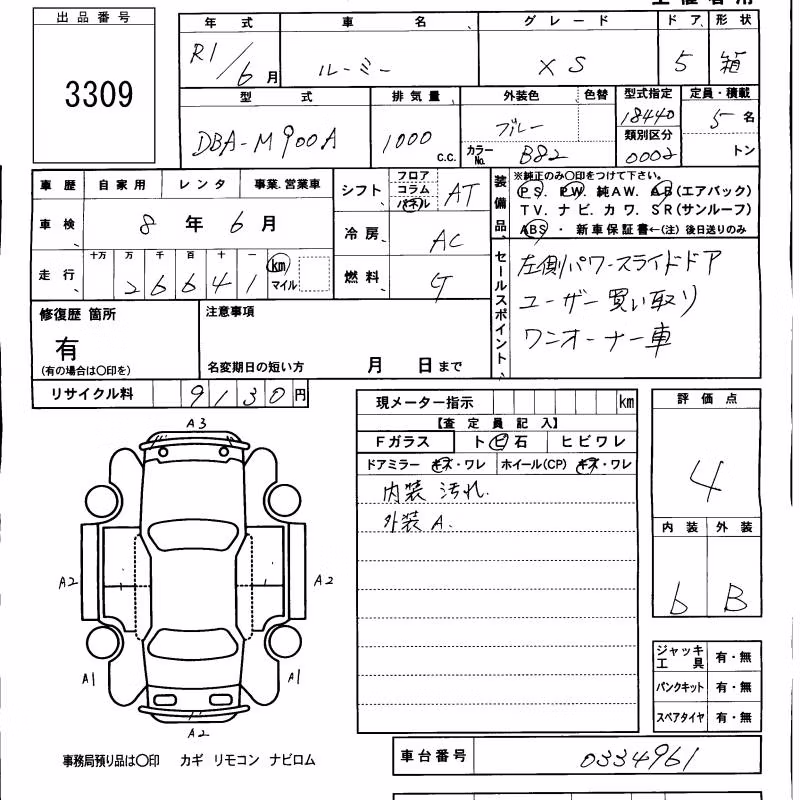 出品番号
3309
年式 車名 グレード ドア 形状
R1/6月 ルーミー XS 5 箱
型式 排気量 外装色 色替 型式指定 定員・積載
DBA-M900A 1000 c.c. ブルー 18440 5名
カラーNo. B82 類別区分 0002 トン
車歴 自家用 レンタ 事業.営業車
車検 8年 6月
走行 十万 万 千 百 十 一 km マイル
26641
シフト フロア コラム パネル AT
冷房 AC
燃料 G
装備品 ※純正のみ〇印をつけて下さい。
PS. PW. 純AW. AB(エアバック)
TV. ナビ. カワ. SR(サンルーフ)
ABS・新車保証書←(注)後日送りのみ
セールスポイント
左側パワースライドドア
ユーザー買い取り
ワンオーナー車
修復歴 箇所
有
(有の場合は〇印を)
注意事項
名変期日の短い方 月 日まで
リサイクル料 9130円
現メーター指示 km
【査定員記入】
Fガラス トビ石 ヒビワレ
ドアミラー キズ・ワレ ホイール(CP) キズ・ワレ
内装 汚れ.
外装 A.
評価点
4
内装 外装
b B
A3
A2 A2
A1 A1
A2
ジャッキ工具 有・無
パンクキット 有・無
スペアタイヤ 有・無
事務局預り品は〇印 カギ リモコン ナビロム
車台番号 0334961